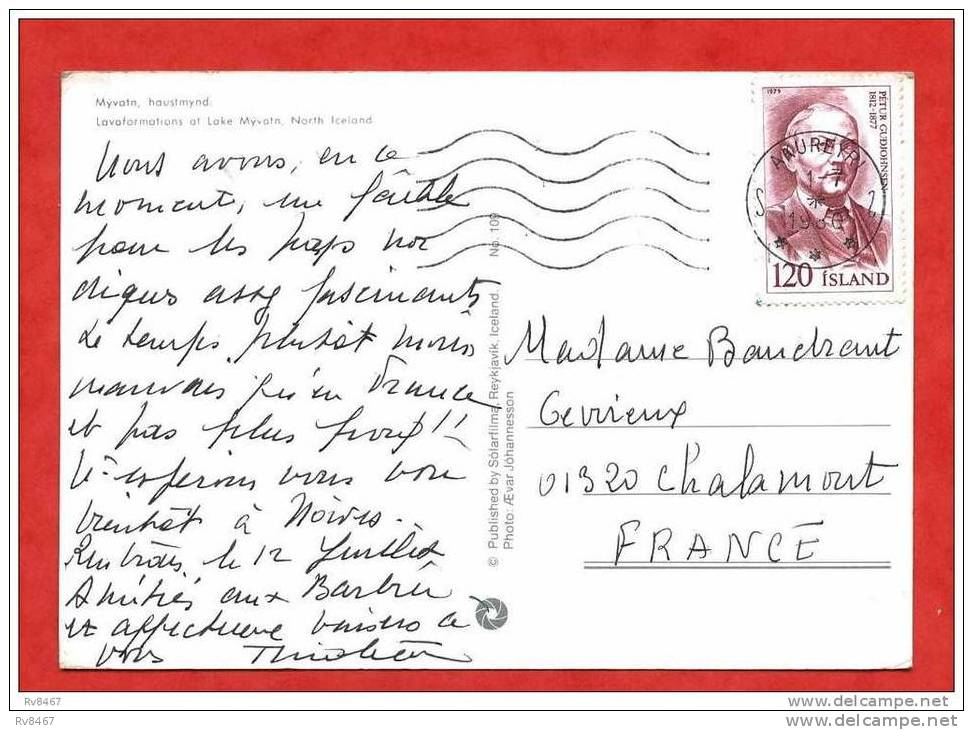 Mývatn, haustmynd.
Lavaformations at Lake Mývatn, North Iceland
Nous avons, en ce
moment, un faible
pour les pays nor
diques assez fascinants
Le temps plutôt moins
mauvais qu'en France
et pas plus froid!!
N. espérons vous voir
bientôt à
Rentrons le 12 Juillet
Amitiés aux
et affectueux baisers à
vous
© Published by Sólarfilma, Reykjavík, Iceland. No. 109
Photo: Ævar Jóhannesson
1979
PÉTUR GUDJOHNSEN
1812-1877
AKUREYRI
1-7
1980
120 ÍSLAND
Madame Baudrant
Gevrieux
01320 Chalamont
FRANCE
Rv8467
delcampe.net
Rv8467
delcampe.net